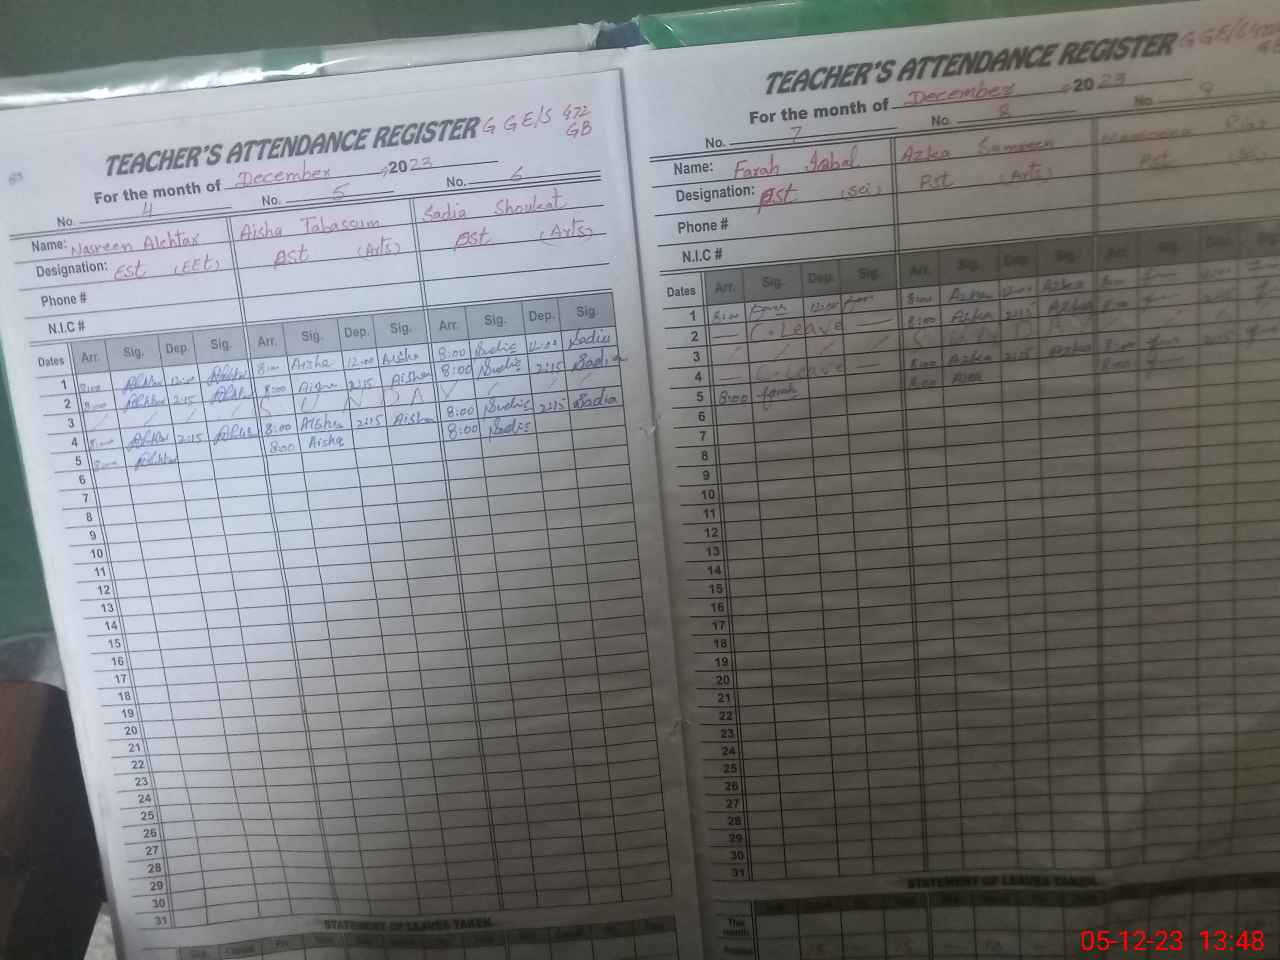 TEACHER'S ATTENDANCE REGISTER G GE/S 472 GB
For the month of December 2023
No. 4 No. 5 No. 6
Name: Nasreen Akhtar Aisha Tabassum Sadia Shoukat
Designation: EST (EET) PST (Arts) PST (Arts)
Phone #
N.I.C #
Dates Arr. Sig. Dep. Sig. Arr. Sig. Dep. Sig. Arr. Sig. Dep. Sig.
1 8:00 12:00 8:00 Aisha 12:00 Aisha 8:00 Sadia 12:00 Sadia
2 8:00 2:15 8:00 Aisha 2:15 Aisha 8:00 Sadia 2:15 Sadia
3 / / / / S U N D A Y / / /
4 8:00 2:15 8:00 Aisha 2:15 Aisha 8:00 Sadia 2:15 Sadia
5 8:00 8:00 Aisha 8:00 Sadia
6
7
8
9
10
11
12
13
14
15
16
17
18
19
20
21
22
23
24
25
26
27
28
29
30
31
STATEMENT OF LEAVES TAKEN
TEACHER'S ATTENDANCE REGISTER G GE/S 472
For the month of December 2023
No. 7 No. 8 No. 9
Name: Farah Iqbal Azka Samreen
Designation: PST (Sci) PST (Arts) PST (Sci)
Phone #
N.I.C #
Dates Arr. Sig. Dep. Sig. Arr. Sig. Dep. Sig. Arr. Sig. Dep. Sig.
1 8:00 12:00 8:00 Azka 12:00 Azka 8:00 12:00
2 — C. Leave — 8:00 Azka 2:15 Azka 8:00 2:15
3
4 — C. Leave — 8:00 Azka 2:15 Azka 8:00 2:15
5 8:00 Farah 8:00 Azka 8:00
6
7
8
9
10
11
12
13
14
15
16
17
18
19
20
21
22
23
24
25
26
27
28
29
30
31
STATEMENT OF LEAVES TAKEN
This month
05-12-23 13:48